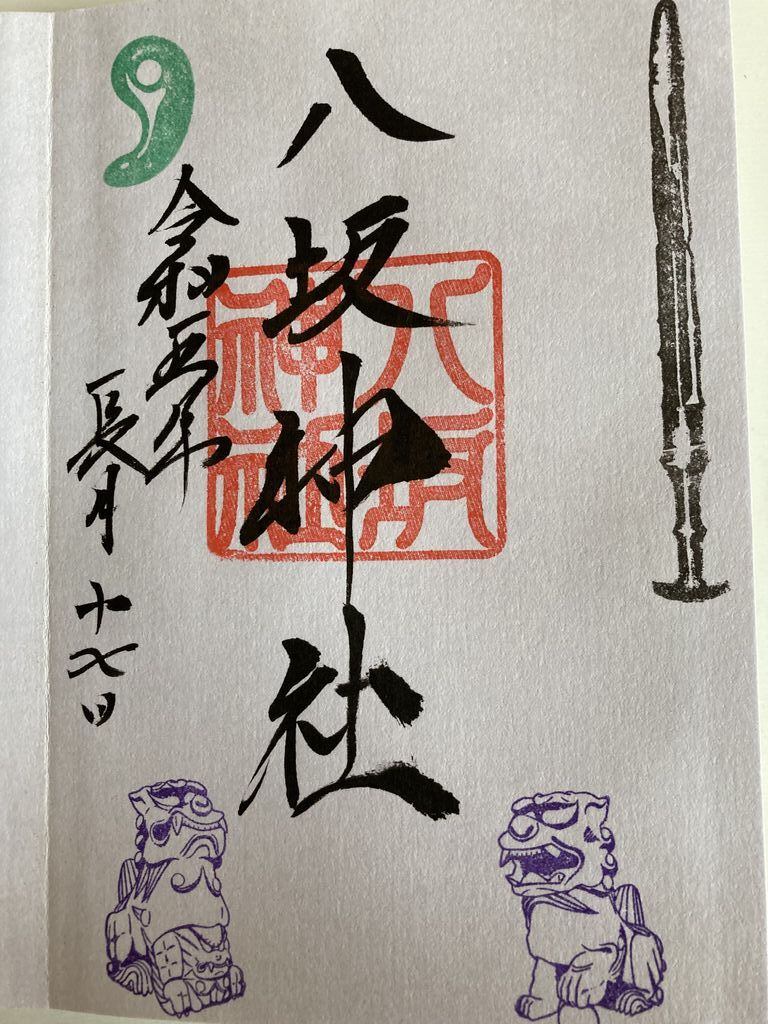 八坂神社
八坂
神社
令和五年
長月
十七日